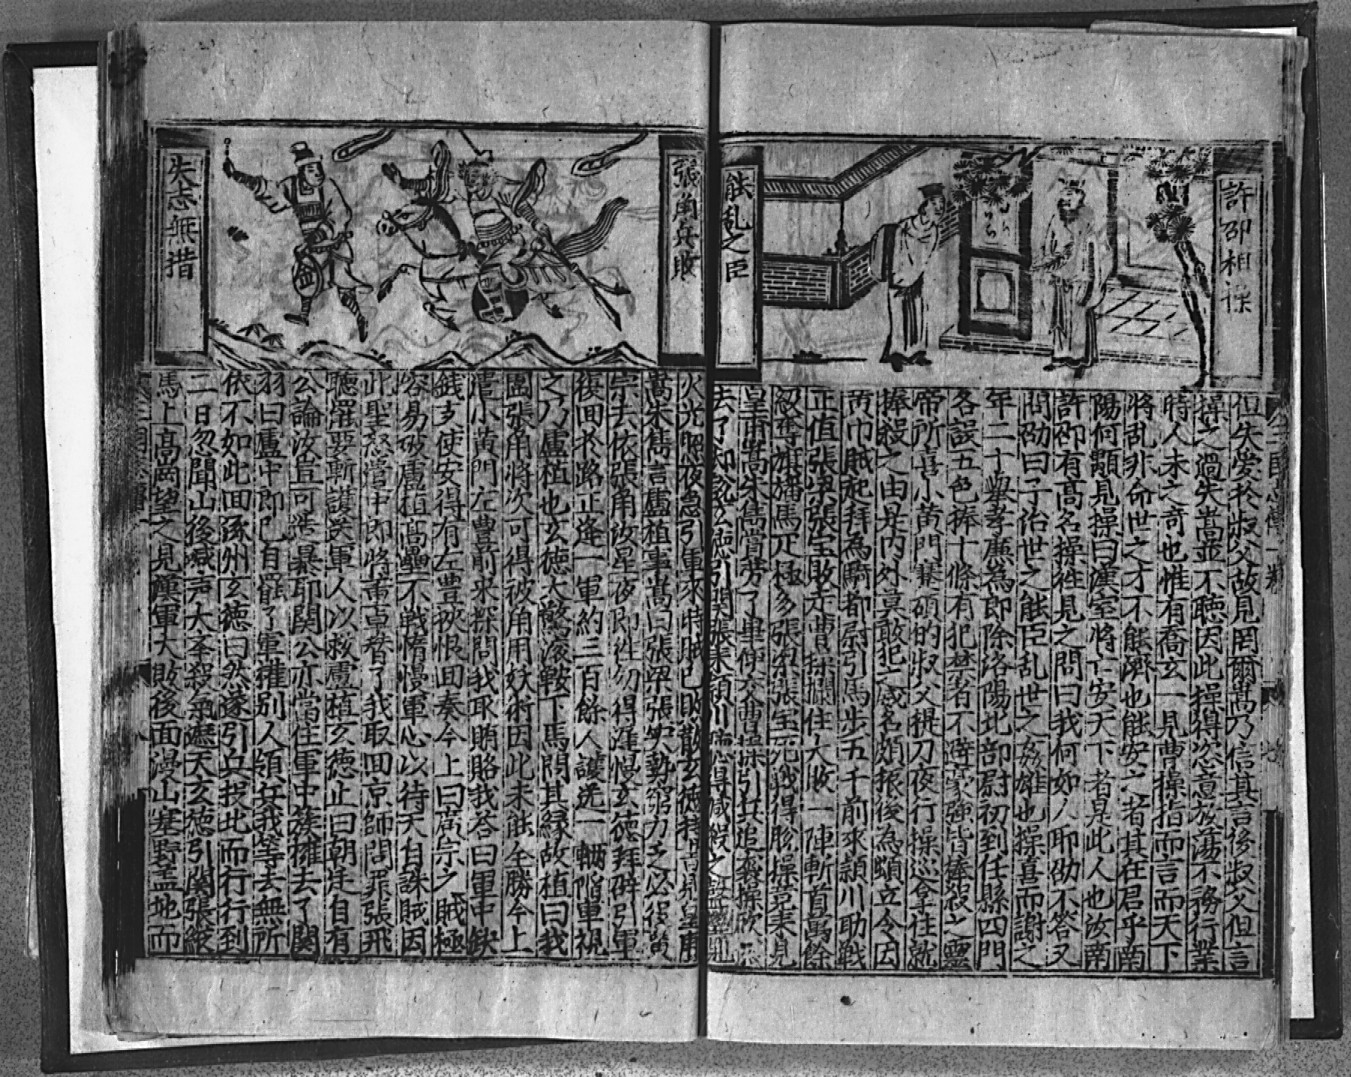 許邵相操
能乱之臣
但失愛於叔父故見罔爾嵩乃信其言後叔父但言
操之過失嵩並不聽因此操得恣意放蕩不務行業
時人未之奇也惟有喬玄一見曹操指而言而天下
將乱非命世之才不能濟也能安之者其在君乎南
陽何顒見操曰漢室將亡安天下者是此人也汝南
許邵有高名操往見之問曰我何如人耶邵不答又
問邵曰子治世之能臣乱世之奸雄也操喜而謝之
年二十舉孝廉為郎除洛陽北部尉初到任縣四門
各設五色棒十條有犯禁者不避豪強皆棒殺之靈
帝所喜小黄門蹇碩的叔父提刀夜行操巡拿住就
棒殺之由是内外莫敢犯威名頗振後為頓立令因
黄巾賊起拜為騎都尉引馬步五千前來潁川助戰
正值張梁張宝敗走曹操攔住大殺一陣斬首萬餘
級奪旗旛馬疋極多張梁張宝死戰得脫操敀來見
皇甫嵩朱雋賞勞了畢便交曹操引兵追襲操欣然
去了却說玄德引関張來潁川
張角兵敗
失志無措
火光照夜急引軍來時賊已敗散玄德
嵩朱雋言盧植事嵩曰張梁張宝勢窮力乏必投廣
宗去依張角汝星夜即往勿得遲慢玄德拜辞引軍
復回於路正逢一軍約三百餘人護送一輛陷車視
之乃盧植也玄德大驚滚鞍下馬問其縁故植曰我
圍張角將次可得被角用妖術因此未能全勝今上
遣小黄門左豊前來探問我取賄賂我答曰軍中缺
錢多使安得有左豊挾恨回奏今上曰廣宗之賊極
容易破盧植高壘不戰惰慢軍心以待天自誅賊因
此聖怒董中郎將董卓替了我取回京師問罪張飛
聽罷要斬護送軍人以救盧植玄德止曰朝廷自有
公論汝豈可造暴耶関公亦當住軍中簇擁去了関
羽曰盧中郎已自罷了軍權別人領兵我等去無所
依不如此回涿州玄徳曰然遂引兵投北而行行到
二日忽聞山後喊声大举殺氣遮天玄徳引関張縱
馬上高岡望之見漢軍大敗後面漫山塞野蓋地而